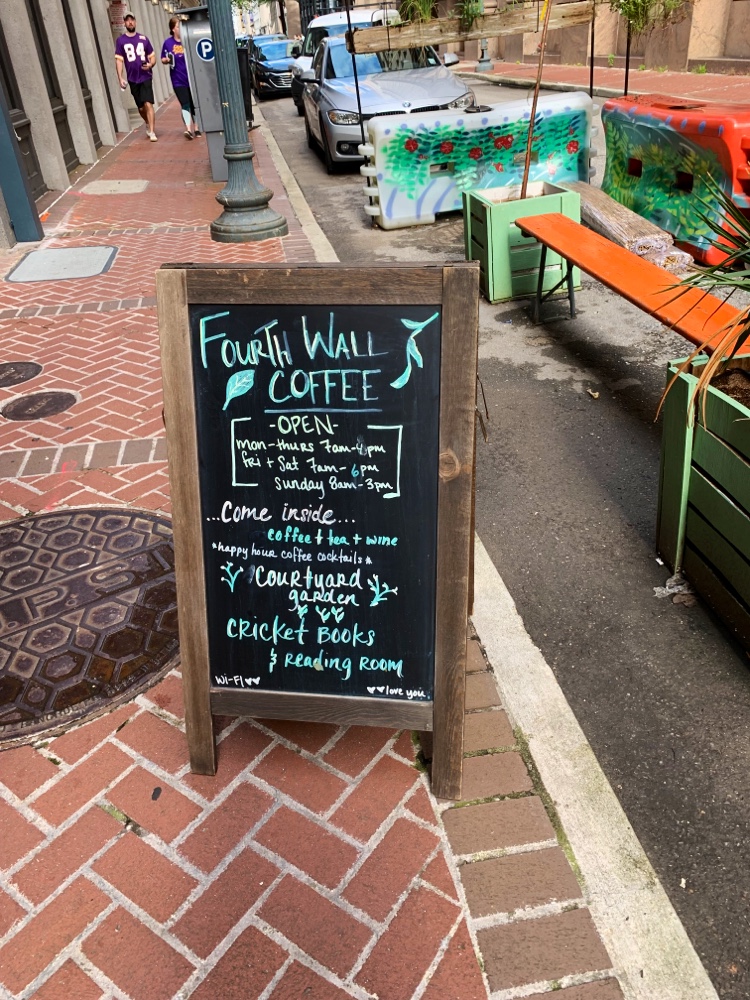 84
P
FOURTH WALL
COFFEE
-OPEN-
mon-thurs 7am-4pm
fri + Sat 7am-6pm
Sunday 8am-3pm
...Come inside...
coffee + tea + wine
*happy hour coffee cocktails*
COURTYARD
garden
CRICKET BOOKS
& Reading Room
Wi-Fi ♥♥
♥♥ love you